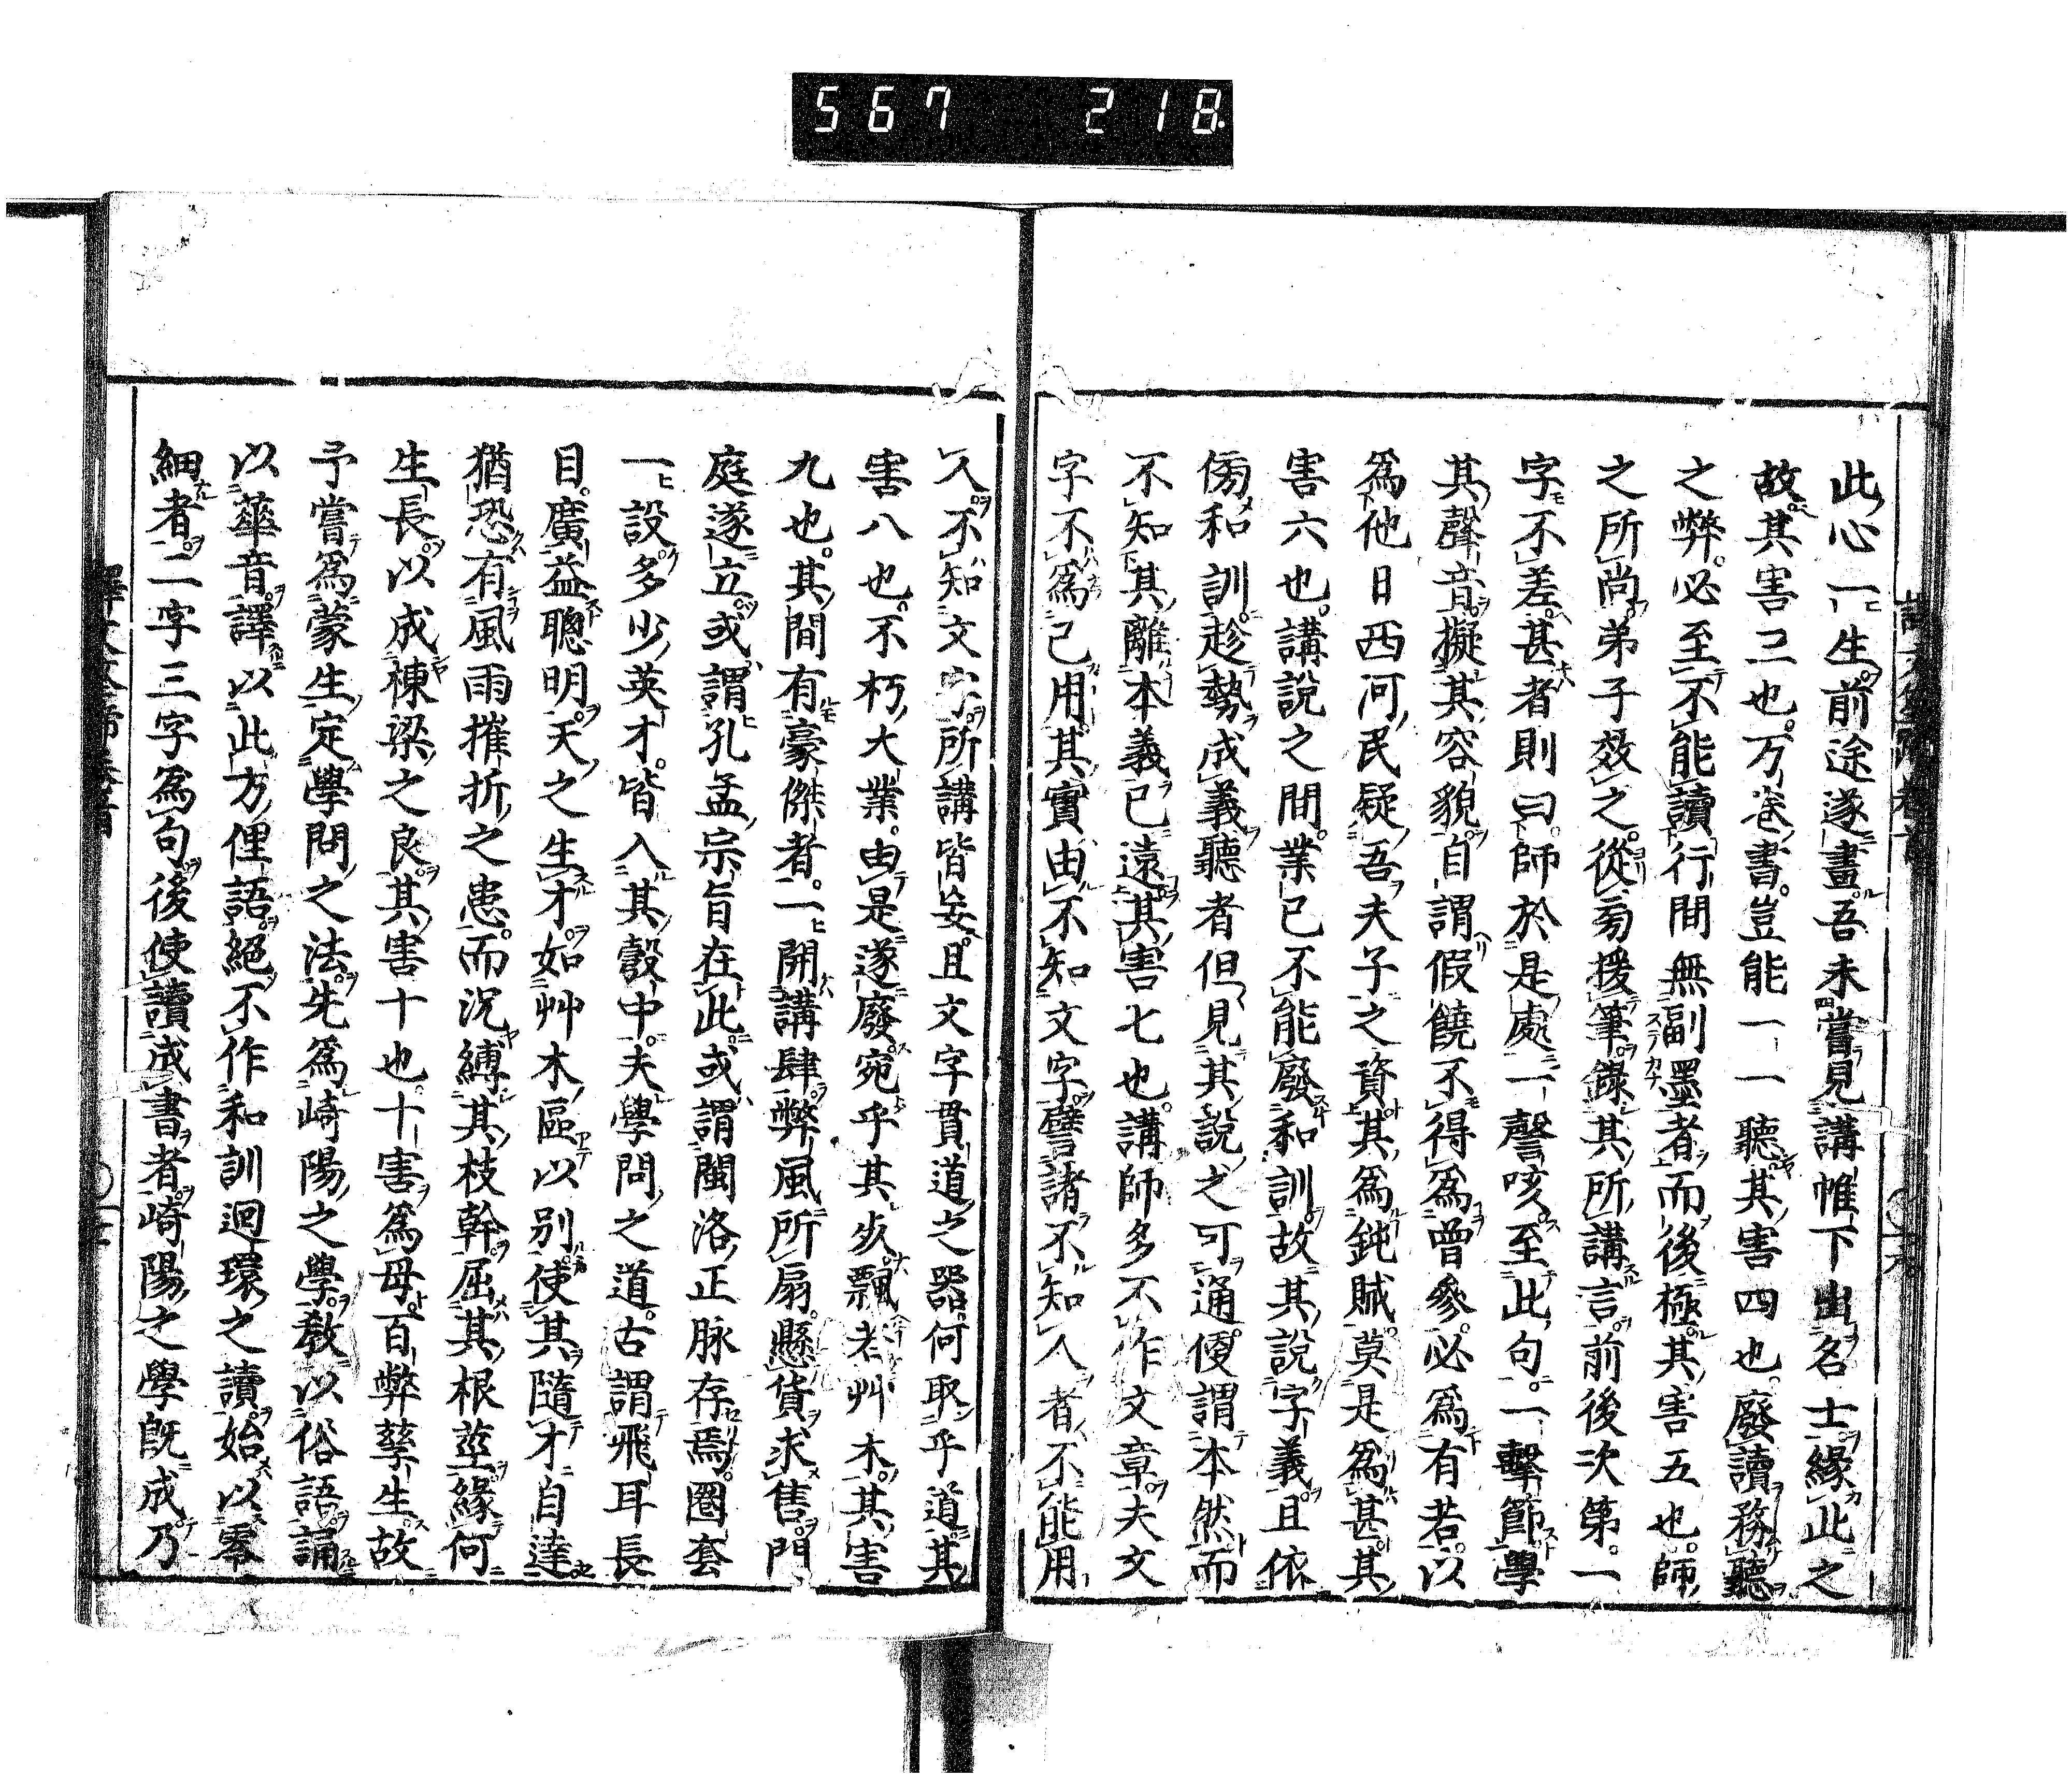 567 218
此心一生前途遂畫吾未嘗見講帷下出名士緣此之
故其害三也万卷書豈能一一聽其害四也廢讀務聽
之弊必至不能讀行間無副墨者而後極其害五也師
之所尚弟子效之從旁援筆錄其所講言前後次第一
字不差甚者則曰師於是處一謦咳至此句一擊節學
其聲音擬其容貌自謂假饒不得為曾參必為有若以
為他日西河民疑吾夫子之資其為鈍賊莫是為甚其
害六也講說之間業已不能廢和訓故其說字義且依
傍和訓趁勢成義聽者但見其說之可通便謂本然而
不知其離本義已遠其害七也講師多不作文章夫文
字不為己用其實由不知文字譬諸不知人者不能用
人不知文字所講皆妄且文字貫道之器何取乎道其
害八也不朽大業由是遂廢宛乎其必飄老艸木其害
九也其間有豪傑者一開講肆弊風所扇懸貨求售門
庭遂立或謂孔孟宗旨在此或謂閩洛正脉存焉圈套
一設多少英才皆入其彀中夫學問之道古謂飛耳長
目廣益聰明天之生才如艸木區以別使其隨才自達
猶恐有風雨摧折之患而況縛其枝幹屈其根莖緣何
生長以成棟梁之良其害十也十害為母百弊孳生故
予嘗為蒙生定學問之法先為崎陽之學教以俗語誦
以華音譯以此方俚語絕不作和訓迴環之讀始以零
細者二字三字為句後使讀成書者崎陽之學既成乃